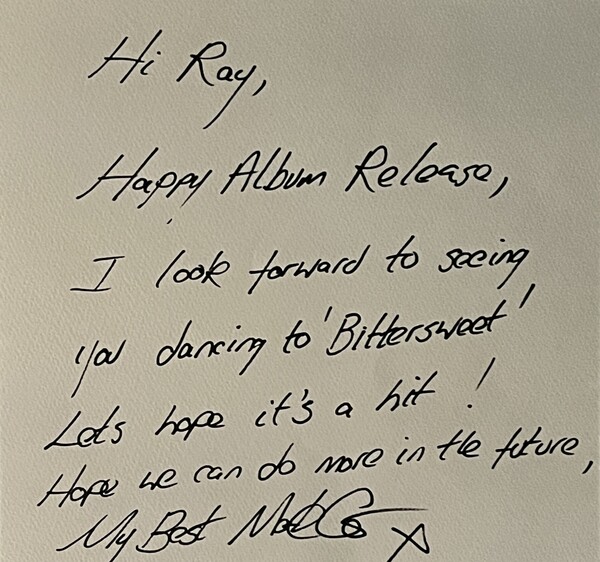 Hi Ray,
Happy Album Release,
I look forward to seeing
you dancing to 'Bittersweet'
Lets hope it's a hit !
Hope we can do more in the future,
My Best x